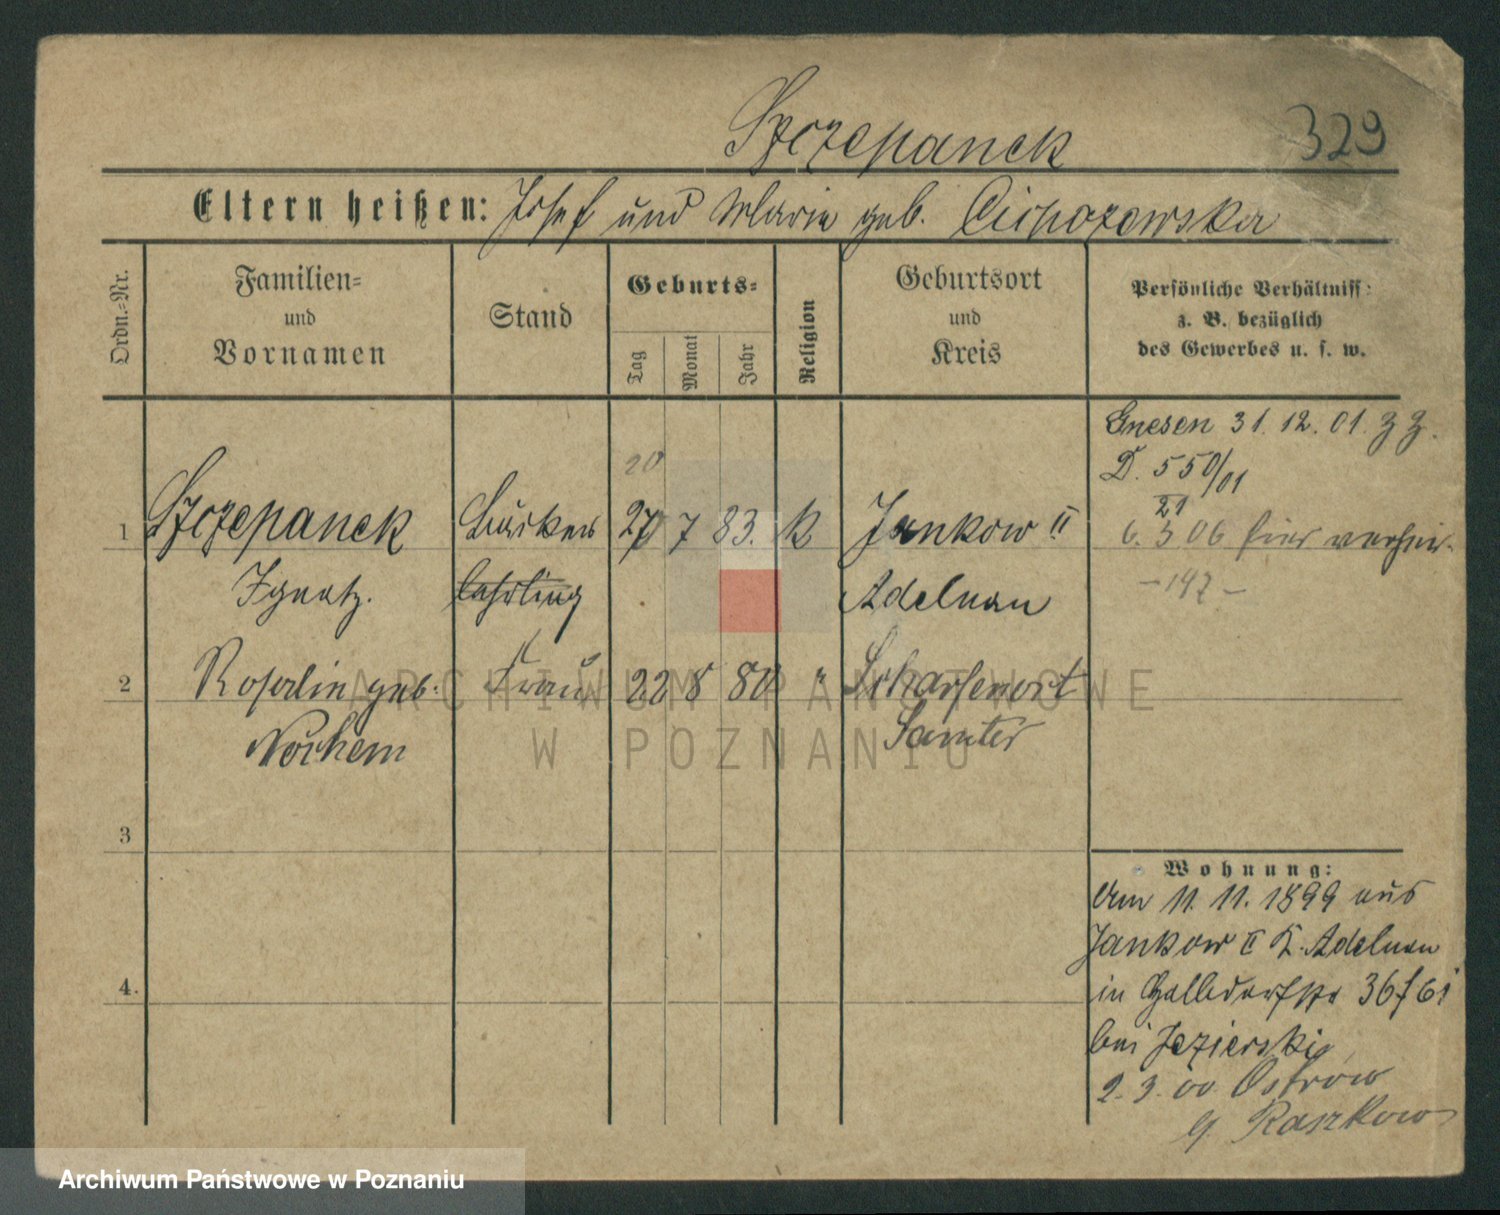 Szczepanek
329
Eltern heißen: Josef und Marie geb.
Ordn.-Nr.
Familien-
und
Vornamen
Stand
Geburts-
Tag
Monat
Jahr
Religion
Geburtsort
und
Kreis
Persönliche Verhältniss:
z. B. bezüglich
des Gewerbes u. s. w.
Gnesen 31. 12. 01.
D. 550/01
20
21
1 Szczepanek Bäcker 27 7 83. k Jankow II 6. 3 06 hier verheir.
Ignatz. lehrling Adelnau -147-
2 geb. Frau 22 8 80 " Scharfenort
Nochem Samter
3
4.
Wohnung:
Am 11. 11. 1899 aus
Jankow II K. Adelnau
in 36
bei Jezierski
2. 3. 00. Ostrow
Raszkow
ARCHIWUM PAŃSTWOWE
W POZNANIU
Archiwum Państwowe w Poznaniu